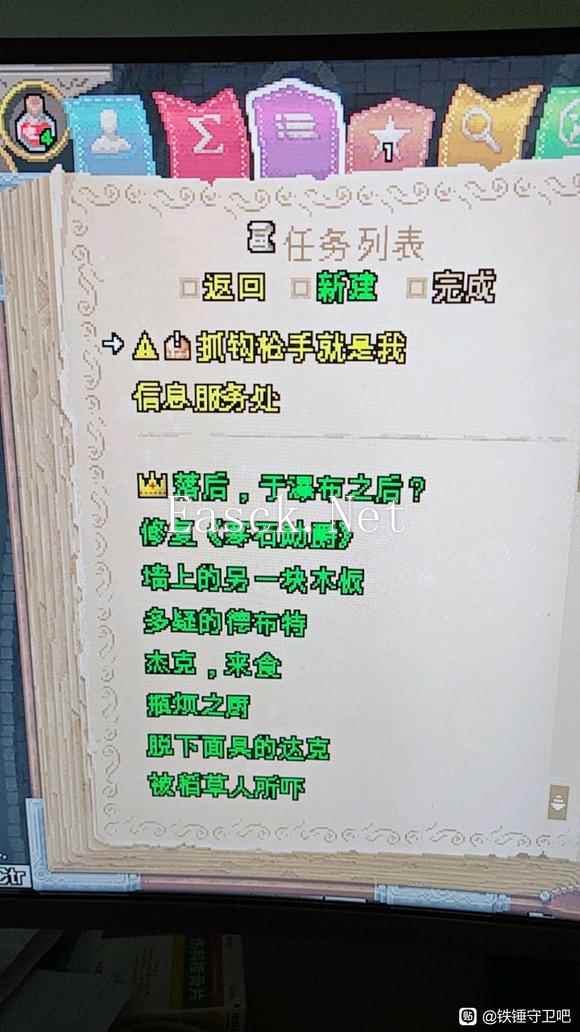 4
1
任务列表
返回 新建 完成
抓钩枪手就是我
信息服务处
落后，于瀑布之后？
Easck.Net
墙上的另一块木板
多疑的德布特
杰克，来食
瓶烦之厨
脱下面具的达克
被稻草人所吓
Ctr
@铁锤守卫吧